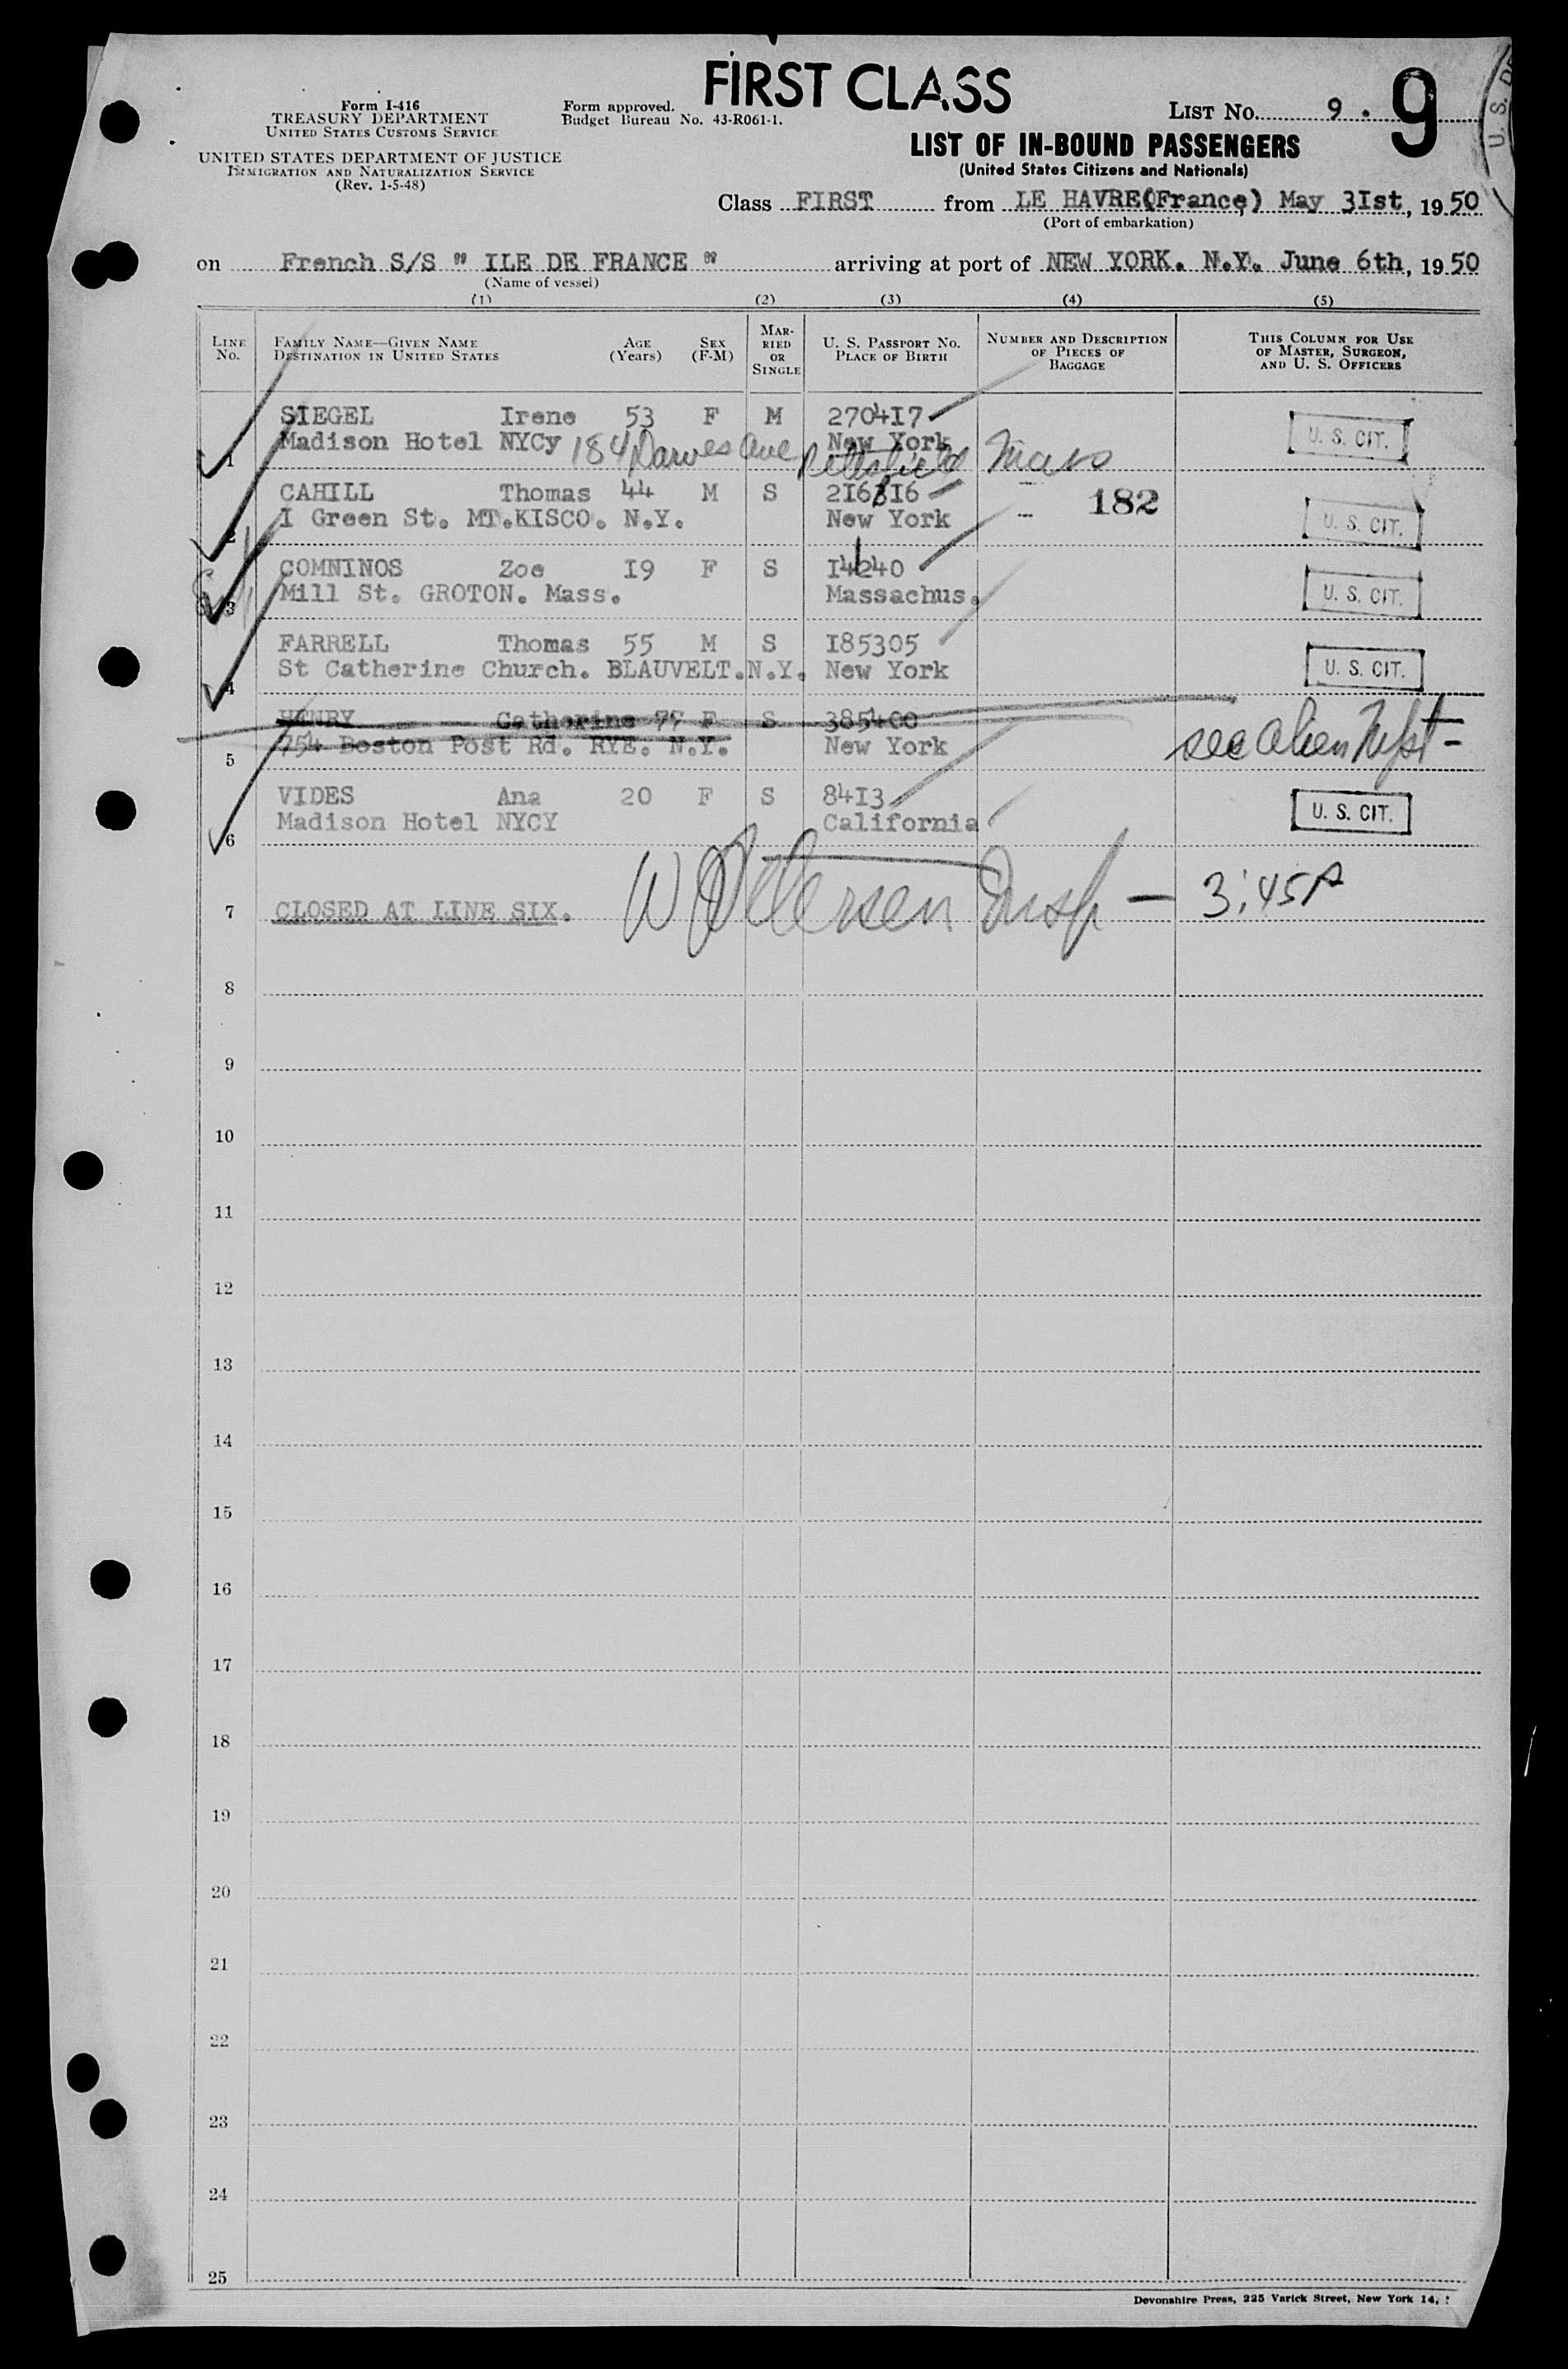 FIRST CLASS
Form I-416
TREASURY DEPARTMENT
UNITED STATES CUSTOMS SERVICE
UNITED STATES DEPARTMENT OF JUSTICE
IMMIGRATION AND NATURALIZATION SERVICE
(Rev. 1-5-48)
Form approved.
Budget Bureau No. 43-R061-1.
LIST NO. 9. 9
U. S. DE
LIST OF IN-BOUND PASSENGERS
(United States Citizens and Nationals)
Class FIRST from LE HAVRE(France) May 3Ist, 1950
(Port of embarkation)
on French S/S " ILE DE FRANCE " arriving at port of NEW YORK. N.Y. June 6th, 1950
(Name of vessel)
(1) (2) (3) (4) (5)
LINE No. FAMILY NAME—GIVEN NAME DESTINATION IN UNITED STATES AGE (Years) SEX (F-M) MARRIED OR SINGLE U. S. PASSPORT NO. PLACE OF BIRTH NUMBER AND DESCRIPTION OF PIECES OF BAGGAGE THIS COLUMN FOR USE OF MASTER, SURGEON, AND U. S. OFFICERS
SIEGEL Irene 53 F M 2704I7 U. S. CIT.
1 Madison Hotel NYCy 184 Dawes Ave New York Pittsfield Mass
CAHILL Thomas 44 M S 216816 182 U. S. CIT.
2 I Green St. MT.KISCO. N.Y. New York
COMNINOS Zoe I9 F S I4240 U. S. CIT.
3 Mill St. GROTON. Mass. Massachus.
FARRELL Thomas 55 M S I85305 U. S. CIT.
4 St Catherine Church. BLAUVELT.N.Y. New York
HENRY Catherine 77 F S 385400
5 754 Boston Post Rd. RYE. N.Y. New York see alien Mfst -
VIDES Ana 20 F S 84I3 U. S. CIT.
6 Madison Hotel NYCY California
7 CLOSED AT LINE SIX. W Petersen Insp — 3:45P
8
9
10
11
12
13
14
15
16
17
18
19
20
21
22
23
24
25
Devonshire Press, 225 Varick Street, New York 14,